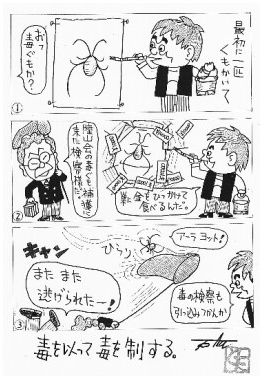 最初に一匹
くもかいて
おっ
毒ぐもか?
①
陸山会の毒ぐも、捕獲に
来た検察様だ。
巣に金をひっかけて
食べるんだ。
②
アーラ ヨット!
ひらり
キャン
また また
逃げられたー!
毒の検察も
引っ込みつかんか
③
毒を以って毒を制する。